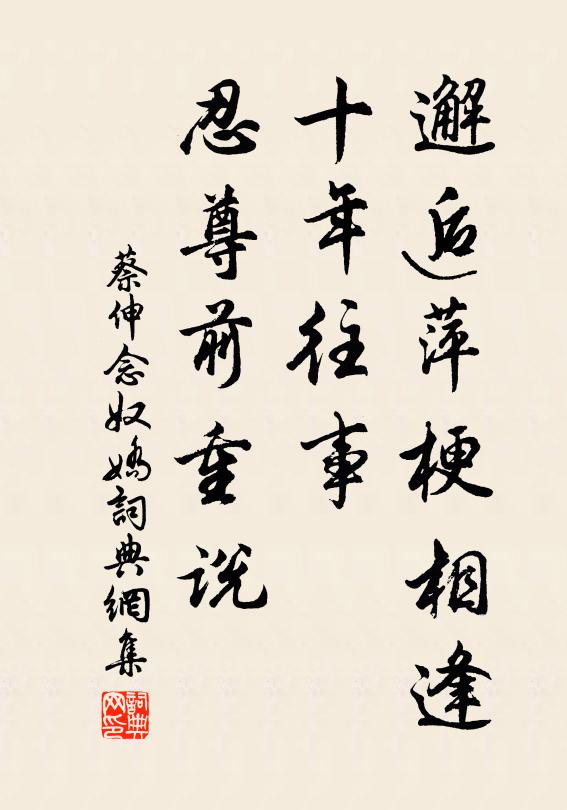 邂逅萍梗相逢
十年往事
忍尊前重说
蔡伸念奴嬌詞典網集
詞典网印